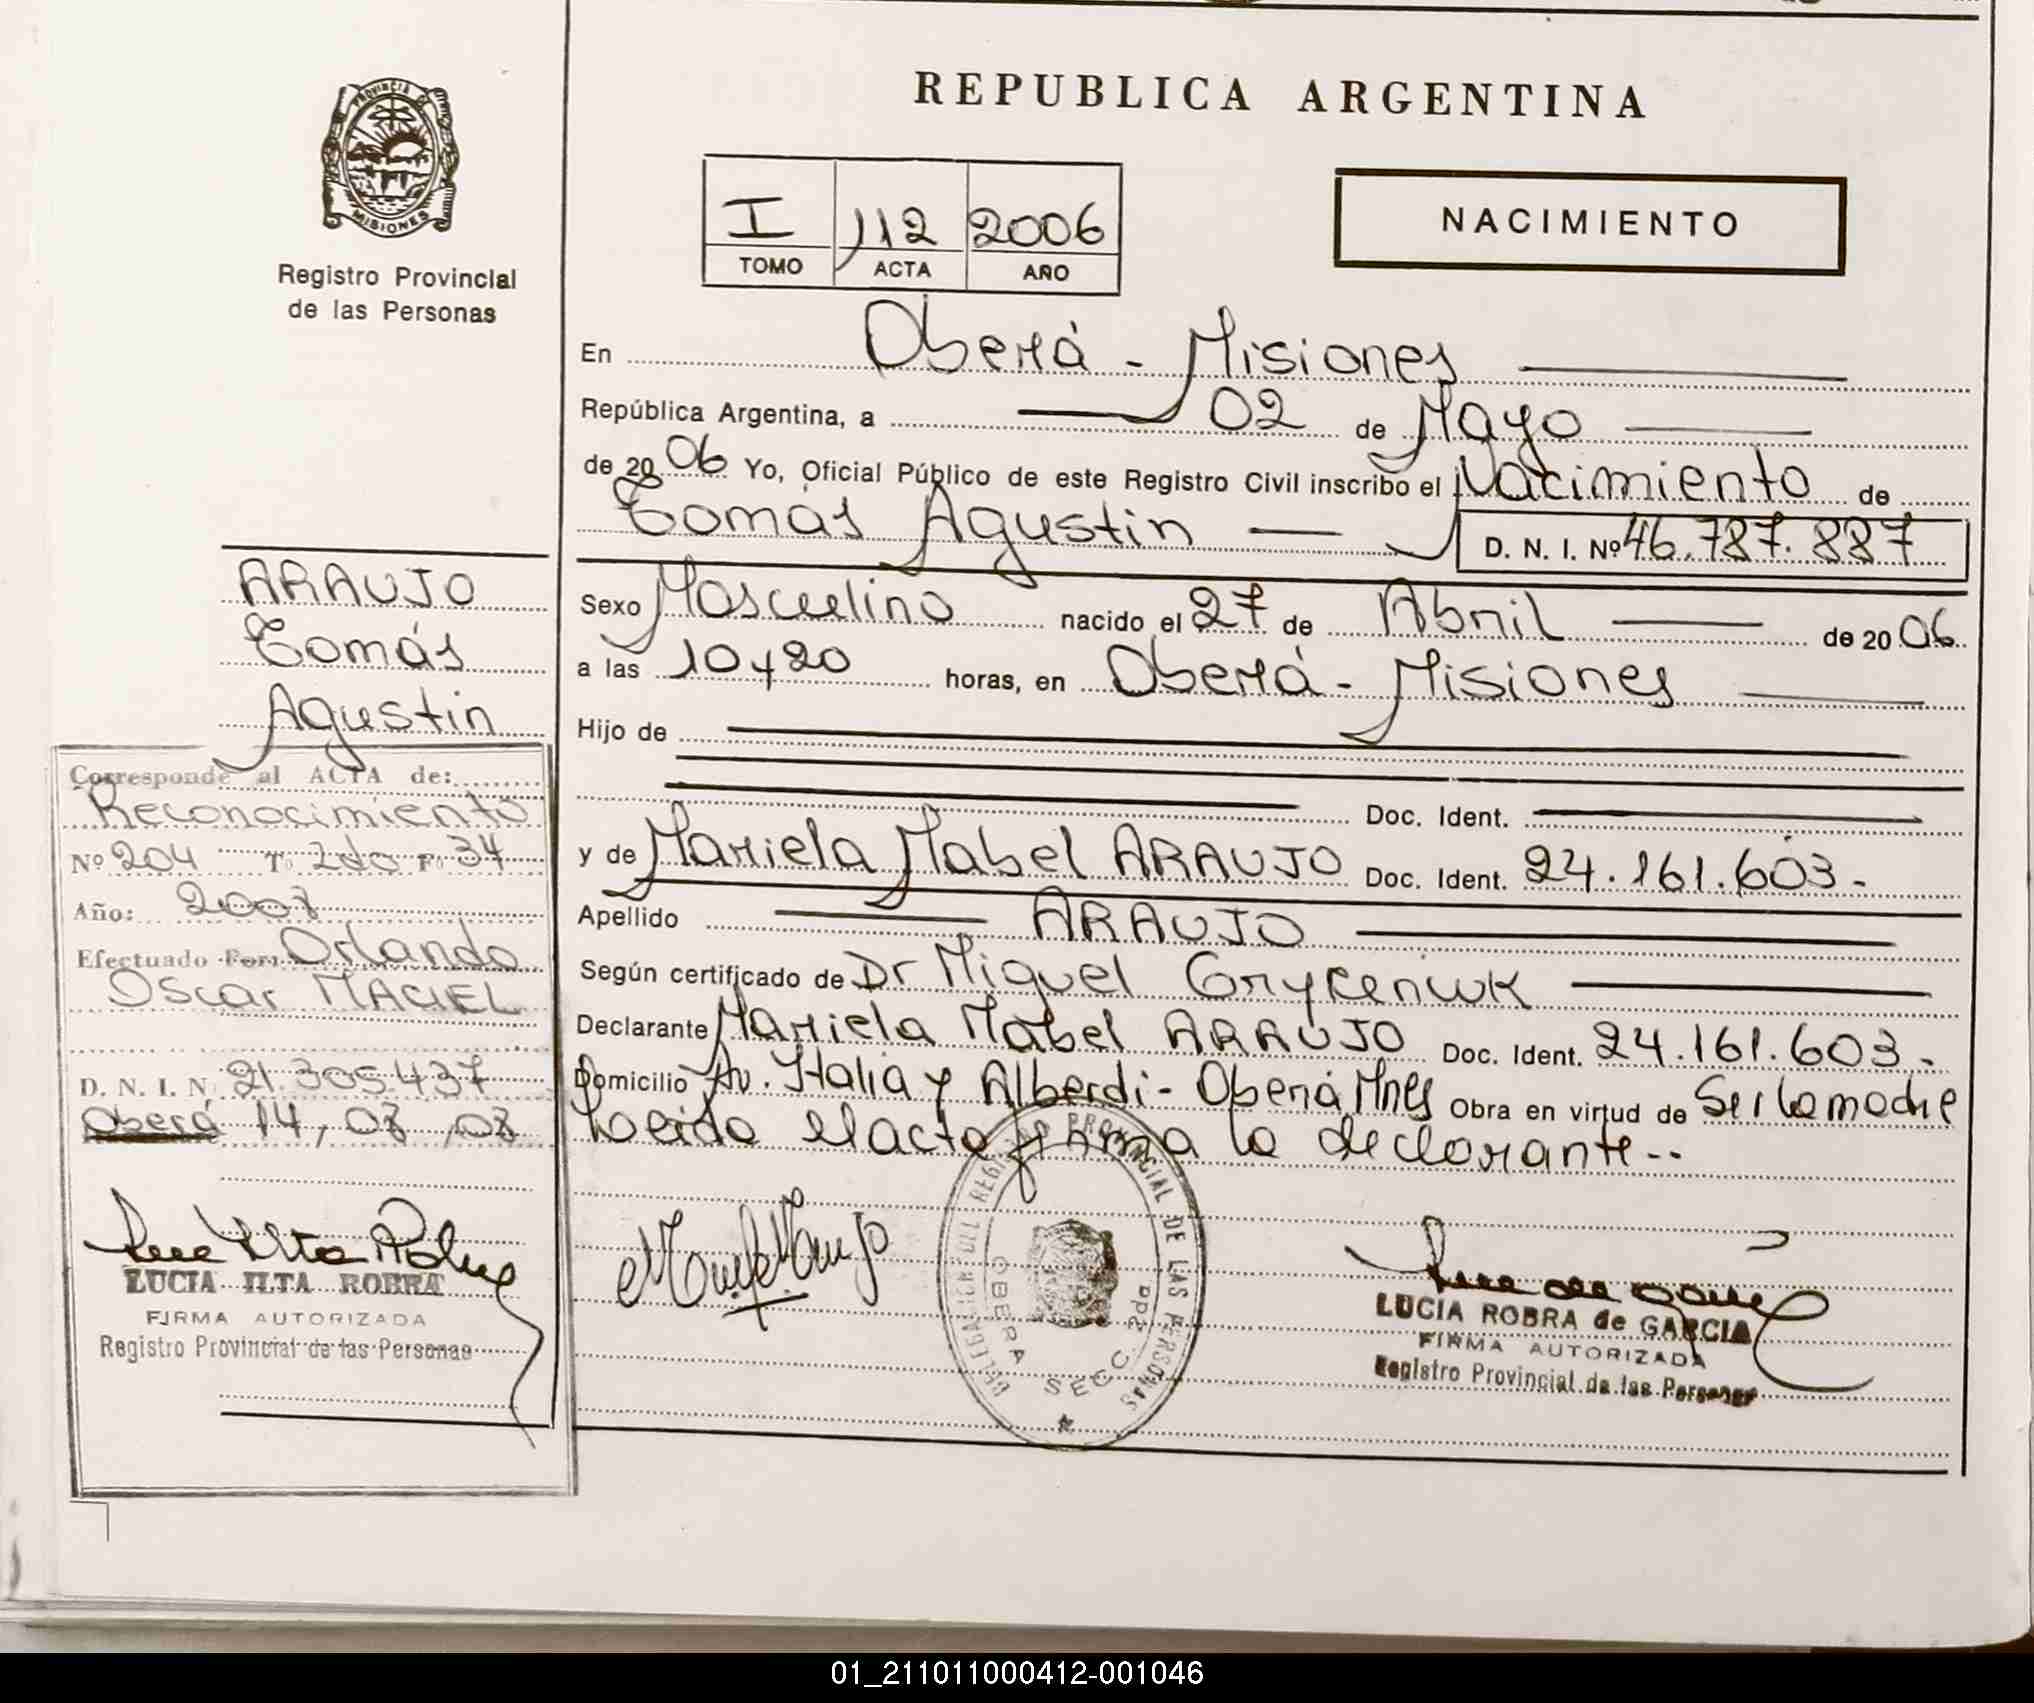 PROVINCIA DE
MISIONES
Registro Provincial
de las Personas
ARAUJO
Tomás
Agustin
Corresponde al ACTA de:
Reconocimiento
Nº 204 Tº 2do Fº 34
Año:
Efectuado Por: Orlando
Oscar MACIEL
D. N. I. N 21.305.437
Oberá 14,
LUCIA ILTA ROBRA
FIRMA AUTORIZADA
Registro Provincial de las Personas
REPUBLICA ARGENTINA
I 112 2006
TOMO ACTA AÑO
NACIMIENTO
En Oberá - Misiones
República Argentina, a 02 de Mayo
de 2006 Yo, Oficial Público de este Registro Civil inscribo el Nacimiento de
Tomás Agustin D. N. I. Nº 46.787.887
Sexo Masculino nacido el 27 de Abril de 2006
a las 10y20 horas, en Oberá - Misiones
Hijo de
Doc. Ident.
y de Mariela Mabel ARAUJO Doc. Ident. 24.161.603.-
Apellido ARAUJO
Según certificado de Dr Miguel
Declarante Mariela Mabel ARAUJO Doc. Ident. 24.161.603.-
Domicilio Av. Italia y Alberdi - Oberá Mnes Obra en virtud de Ser la madre
Leida el acta firma la declarante..
DELEGACION DEL REGISTRO PROVINCIAL DE LAS PERSONAS
OBERA SECC. 2da
LUCIA ROBRA de GARCIA
FIRMA AUTORIZADA
Registro Provincial de las Personas
01_211011000412-001046